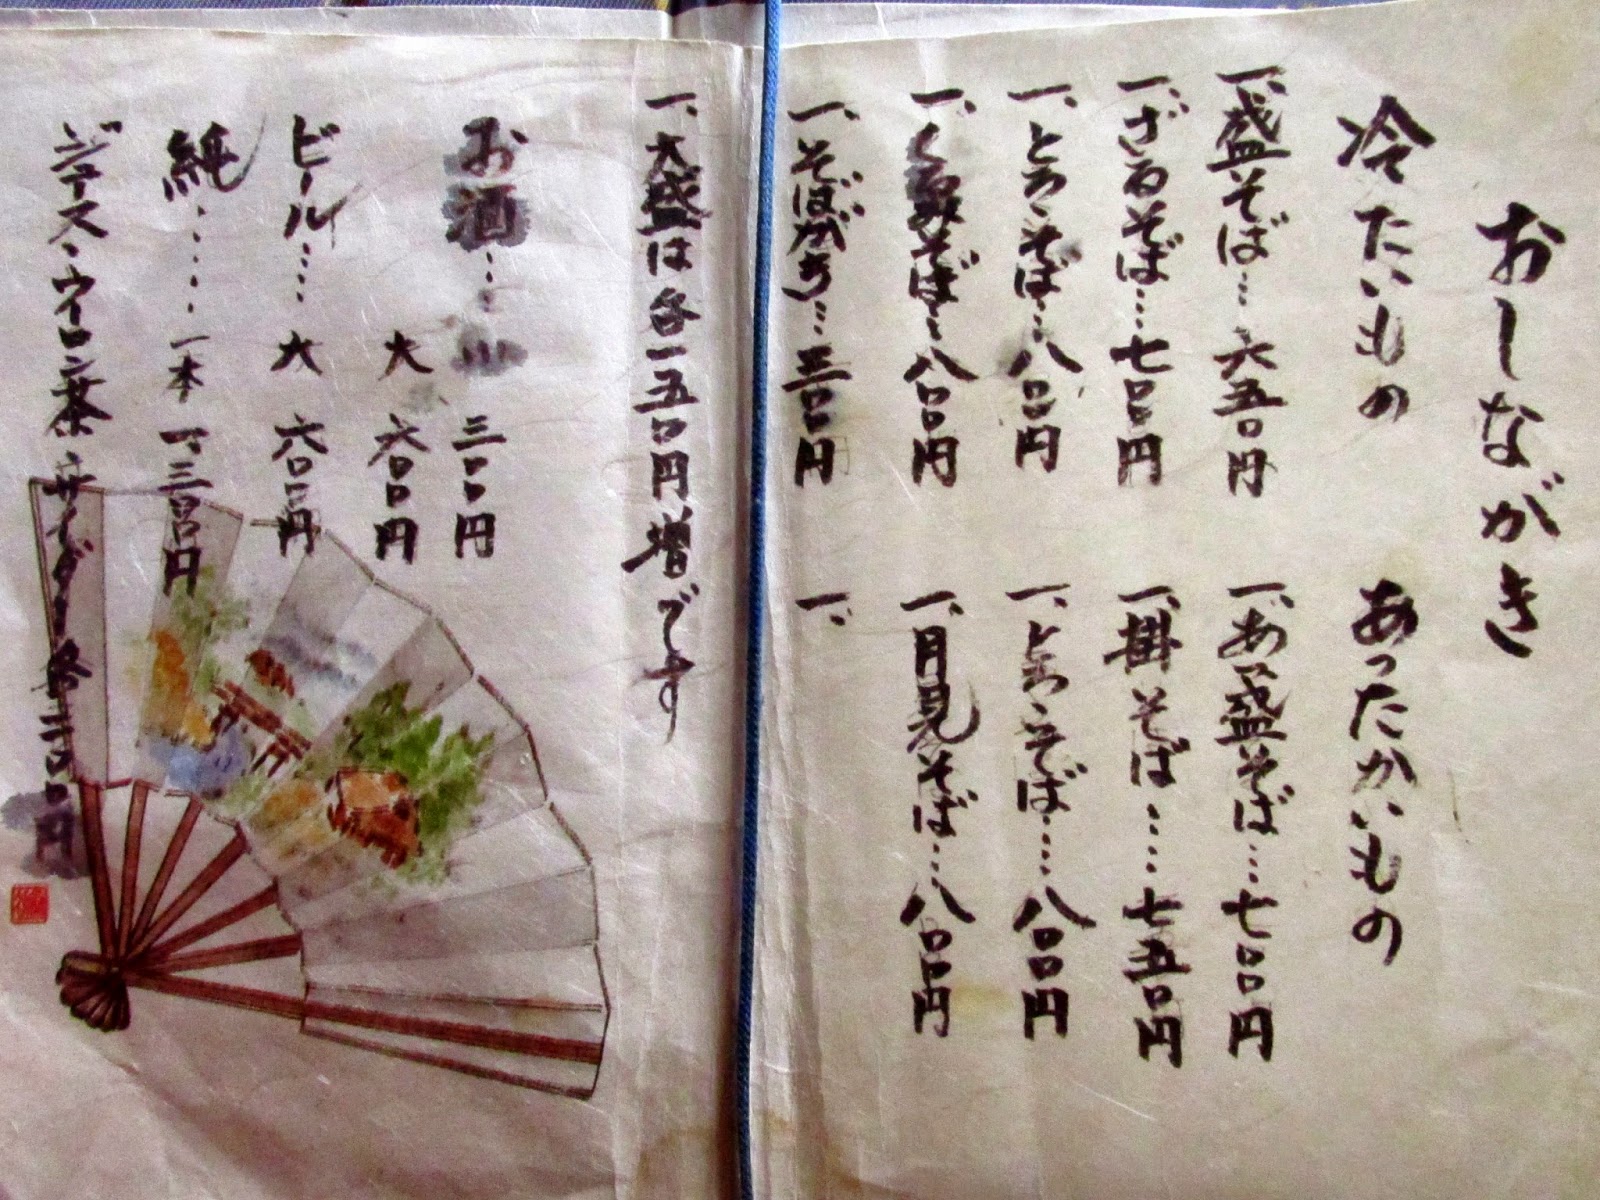 おしながき
冷たいもの
一、盛そば…六五〇円
一、ざるそば…七〇〇円
一、とろろそば…八〇〇円
一、くるみそば…八〇〇円
一、そばがき…三〇〇円
あったかいもの
一、あつ盛そば…七〇〇円
一、掛そば……七五〇円
一、とろろそば……八〇〇円
一、月見そば…八〇〇円
一、
一、大盛は各一五〇円増です
お酒…小 三〇〇円
大 六〇〇円
ビール…… 大 六〇〇円
純…… 一本 一、三〇〇円
ジュース・ウーロン茶・サイダー 各二〇〇円